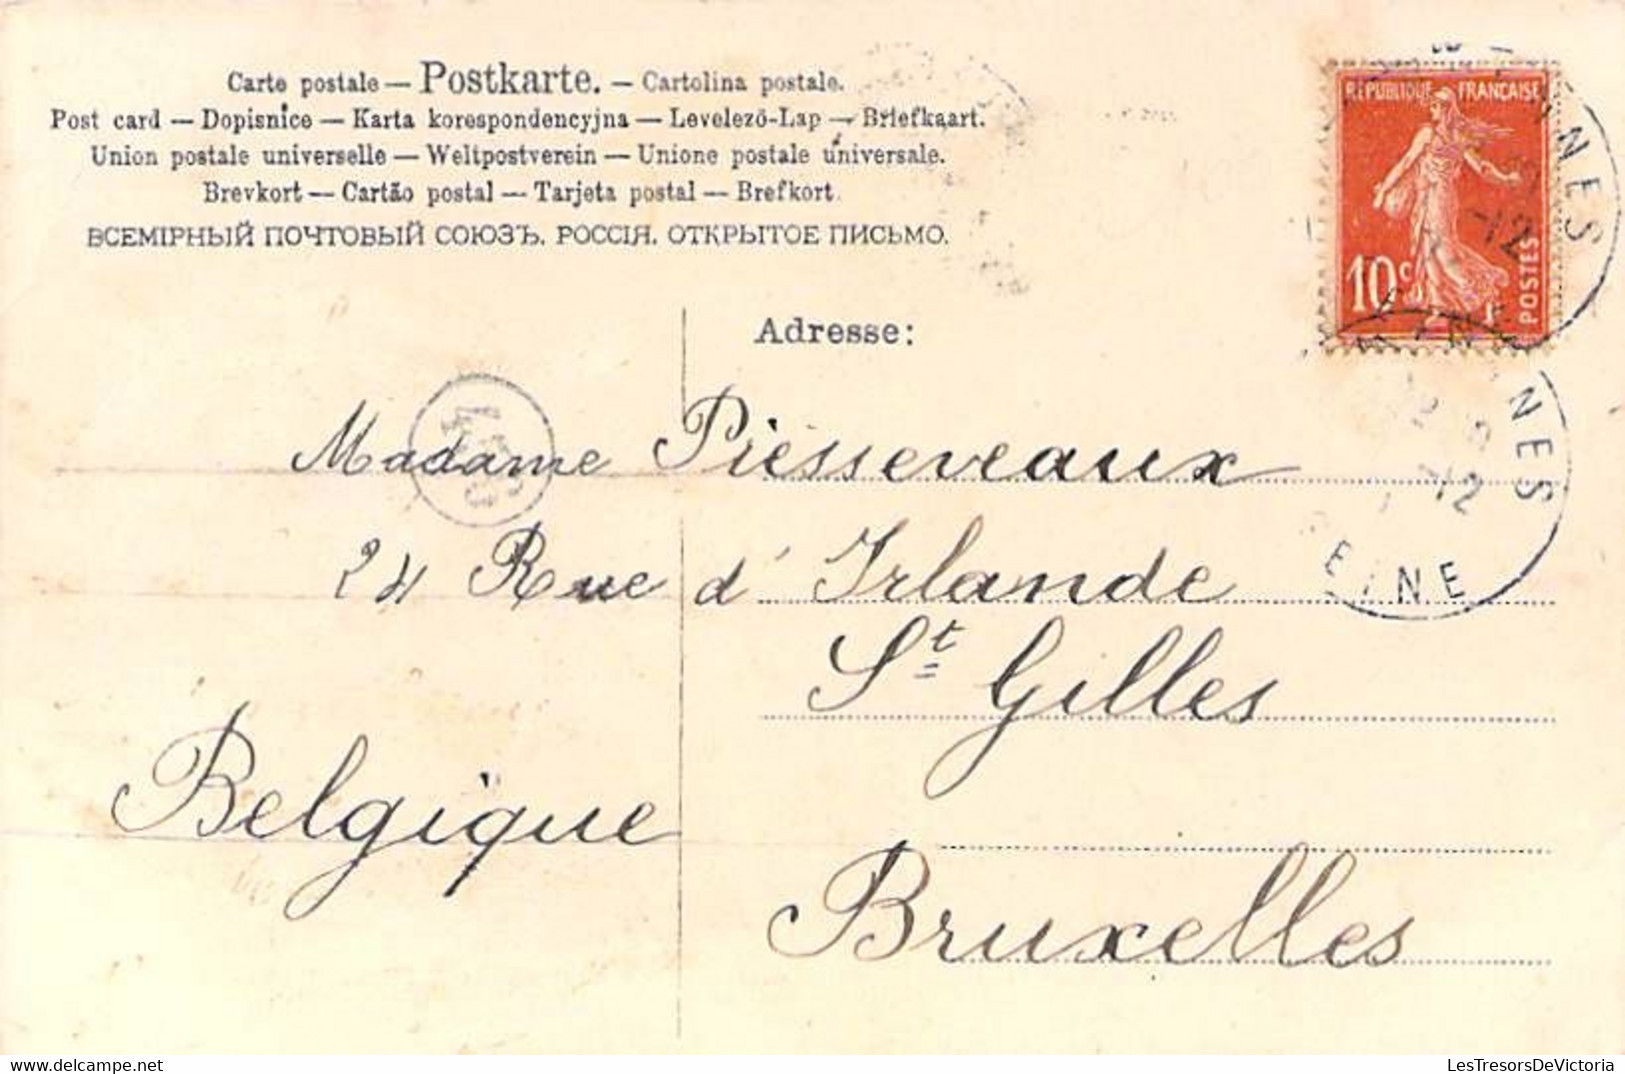 Carte postale — Postkarte. — Cartolina postale.
Post card — Dopisnice — Karta korespondencyjna — Levelező-Lap — Briefkaart.
Union postale universelle — Weltpostverein — Unione postale universale.
Brevkort — Cartão postal — Tarjeta postal — Brefkort.
ВСЕМІРНЫЙ ПОЧТОВЫЙ СОЮЗЪ. РОССІЯ. ОТКРЫТОЕ ПИСЬМО.
RÉPUBLIQUE FRANÇAISE
10c
POSTES
Adresse:
Madame Piesseveaux
24 Rue d'Irlande
St Gilles
Belgique
Bruxelles
LesTresorsDeVictoria